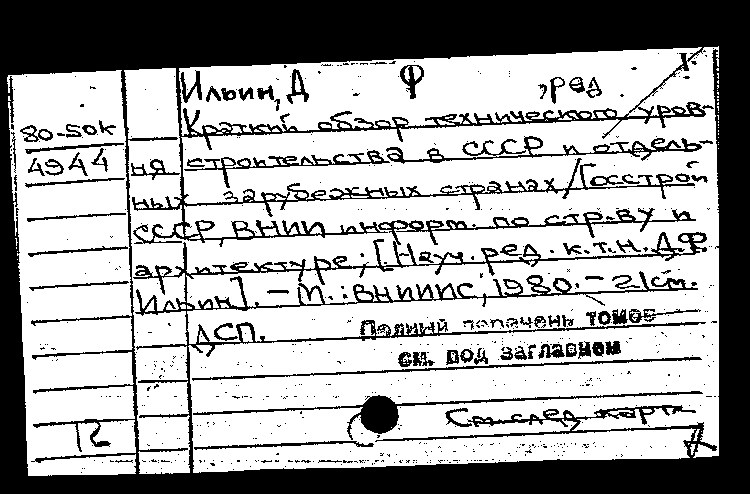 Ильин, Д Ф , ред
80-50к Краткий обзор технического уров-
4944 ня строительства в СССР и отдель-
ных зарубежных странах/Госстрой
СССР, ВНИИ информ. по стр.-ву и
архитектуре; [Науч. ред. к.т.н. Д.Ф.
Ильин]. – М.: ВНИИИС, 1980. – 21см.
ДСП.
Полный перечень томов
см. под заглавием
См. след. карт.
12